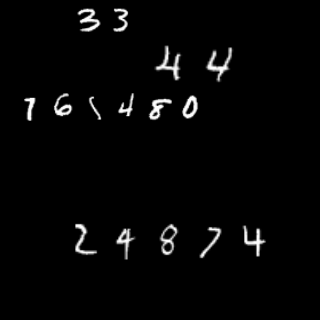 33
44
761480
24874